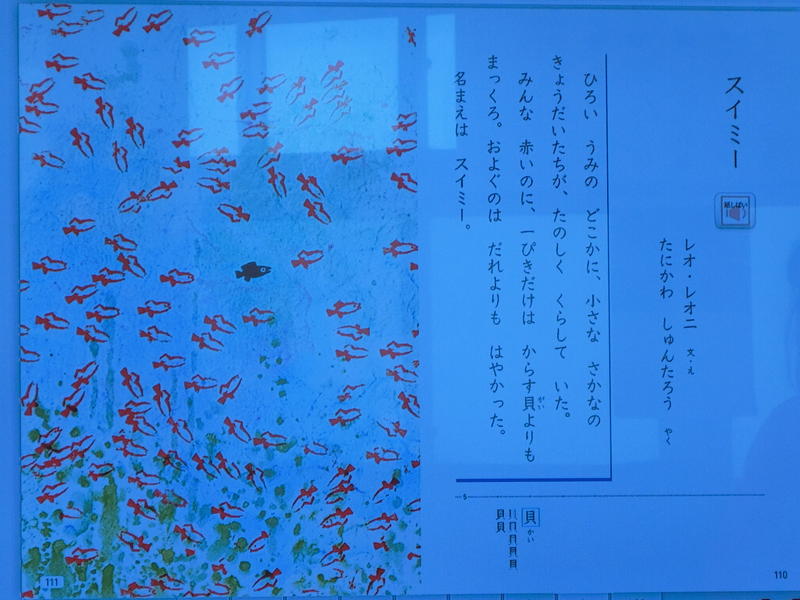 スイミー
紙しばい
レオ・レオニ 文・え
たにかわ しゅんたろう やく
ひろい うみの どこかに、小さな さかなの
きょうだいたちが、たのしく くらして いた。
みんな 赤いのに、一ぴきだけは からす貝よりも
がい
まっくろ。およぐのは だれよりも はやかった。
名まえは スイミー。
5
貝 かい
貝貝
110
111